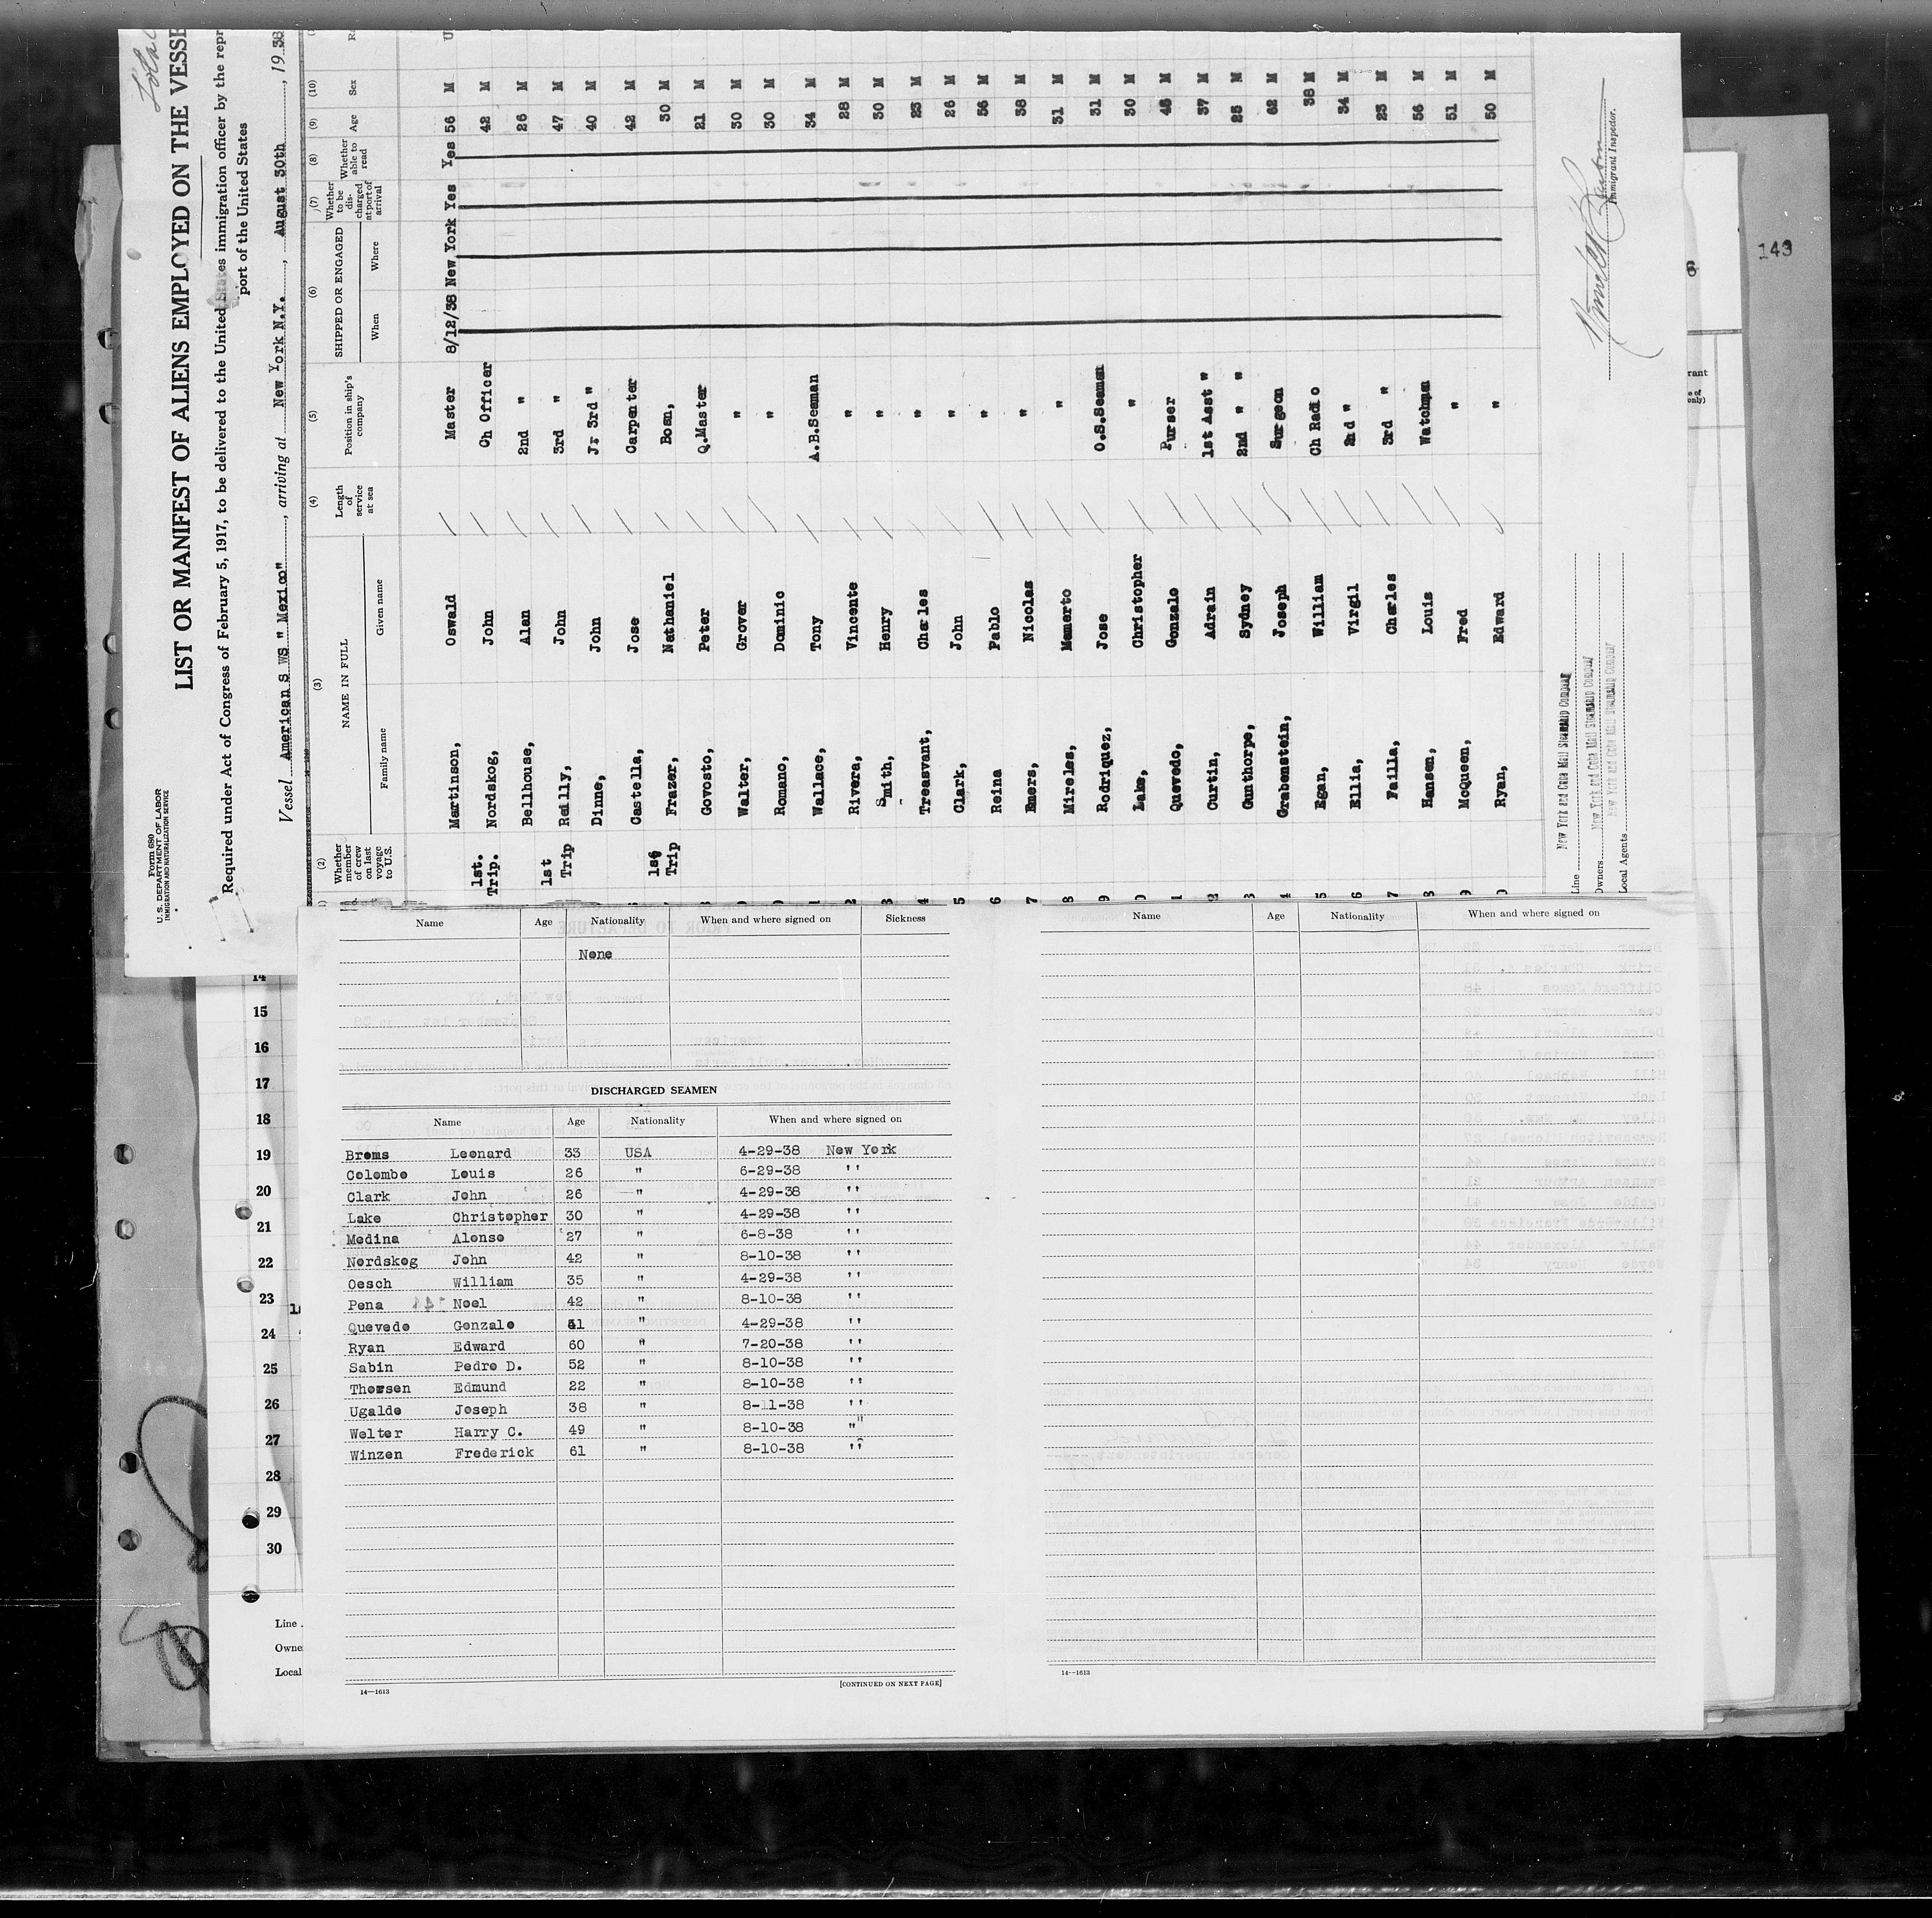 Form 680
U. S. DEPARTMENT OF LABOR
IMMIGRATION AND NATURALIZATION SERVICE
LIST OR MANIFEST OF ALIENS EMPLOYED ON THE VESSE
Required under Act of Congress of February 5, 1917, to be delivered to the United States immigration officer by the repr
port of the United States
Vessel American S WS " Mexico", arriving at New York N.Y., August 30th, 19 38
(2) (3) (4) (5) (6) (7) (8) (9) (10)
Whether member of crew on last voyage to U.S. NAME IN FULL Family name Given name Length of service at sea Position in ship's company SHIPPED OR ENGAGED When Where Whether to be discharged at port of arrival Whether able to read Age Sex
Martinson, Oswald Master 8/12/38 New York Yes Yes 56 M U
1st. Trip. Nordskog, John Ch Officer 42 M
Bellhouse, Alan 2nd " 26 M
1st Trip Reilly, John 3rd " 47 M
Dinne, John Jr 3rd " 40 M
Castella, Jose Carpenter 42 M
1st Trip Frazer, Nathaniel Bosn, 30 M
Govosto, Peter Q.Master 21 M
Walter, Grover " 30 M
Romano, Dominic " 30 M
Wallace, Tony A.B.Seaman 34 M
Rivera, Vincente " 28 M
Smith, Henry " 30 M
Treasvant, Charles " 23 M
Clark, John " 26 M
Reina Pablo " 56 M
Emers, Nicolas " 38 M
Mireles, Memerto " 31 M
Rodriquez, Jose O.S.Seaman 31 M
Lake, Christopher " 30 M
Quevedo, Gonzalo Purser 45 M
Curtin, Adrain 1st Asst " 37 M
Gunthorpe, Sydney 2nd " " 25 M
Grabenstein, Joseph Surgeon 62 M
Egan, William Ch Radio 38 M
Ellia, Virgil 2nd " 34 M
Failla, Charles 3rd " 23 M
Hansen, Louis Watchman 56 M
McQueen, Fred " 51 M
Ryan, Edward " 50 M
Line New York and Cuba Mail Steamship Company
Owners New York and Cuba Mail Steamship Company
Local Agents New York and Cuba Mail Steamship Company
Immigrant Inspector.
143
Name Age Nationality When and where signed on Sickness
None
DISCHARGED SEAMEN
Name Age Nationality When and where signed on
Broms Leonard 33 USA 4-29-38 New York
Colombo Louis 26 " 6-29-38 ''
Clark John 26 " 4-29-38 ''
Lake Christopher 30 " 4-29-38 ''
Medina Alonso 27 " 6-8-38 ''
Nordskog John 42 " 8-10-38 ''
Oesch William 35 " 4-29-38 ''
Pena Noel 42 " 8-10-38 ''
Quevedo Gonzalo 41 " 4-29-38 ''
Ryan Edward 60 " 7-20-38 ''
Sabin Pedro D. 52 " 8-10-38 ''
Thorsen Edmund 22 " 8-10-38 ''
Ugalde Joseph 38 " 8-11-38 ''
Welter Harry C. 49 " 8-10-38 "
Winzen Frederick 61 " 8-10-38 ''
14—1613
[CONTINUED ON NEXT PAGE]
Name Age Nationality When and where signed on
14—1613
14
15
16
17
18
19
20
21
22
23
24
25
26
27
28
29
30
Line
Owne
Local